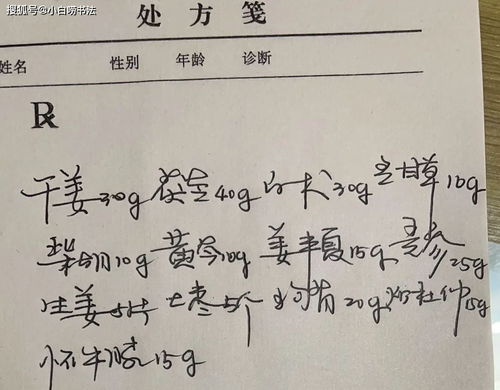 搜狐号@小白唠书法
处方笺
姓名 性别 年龄 诊断
R
干姜30g 茯苓40g 白术30g 炙甘草10g
柴胡10g 黄芩10g 姜半夏15g 党参25g
生姜5片 大枣5个 狗脊20g 炒杜仲15g
怀牛膝15g